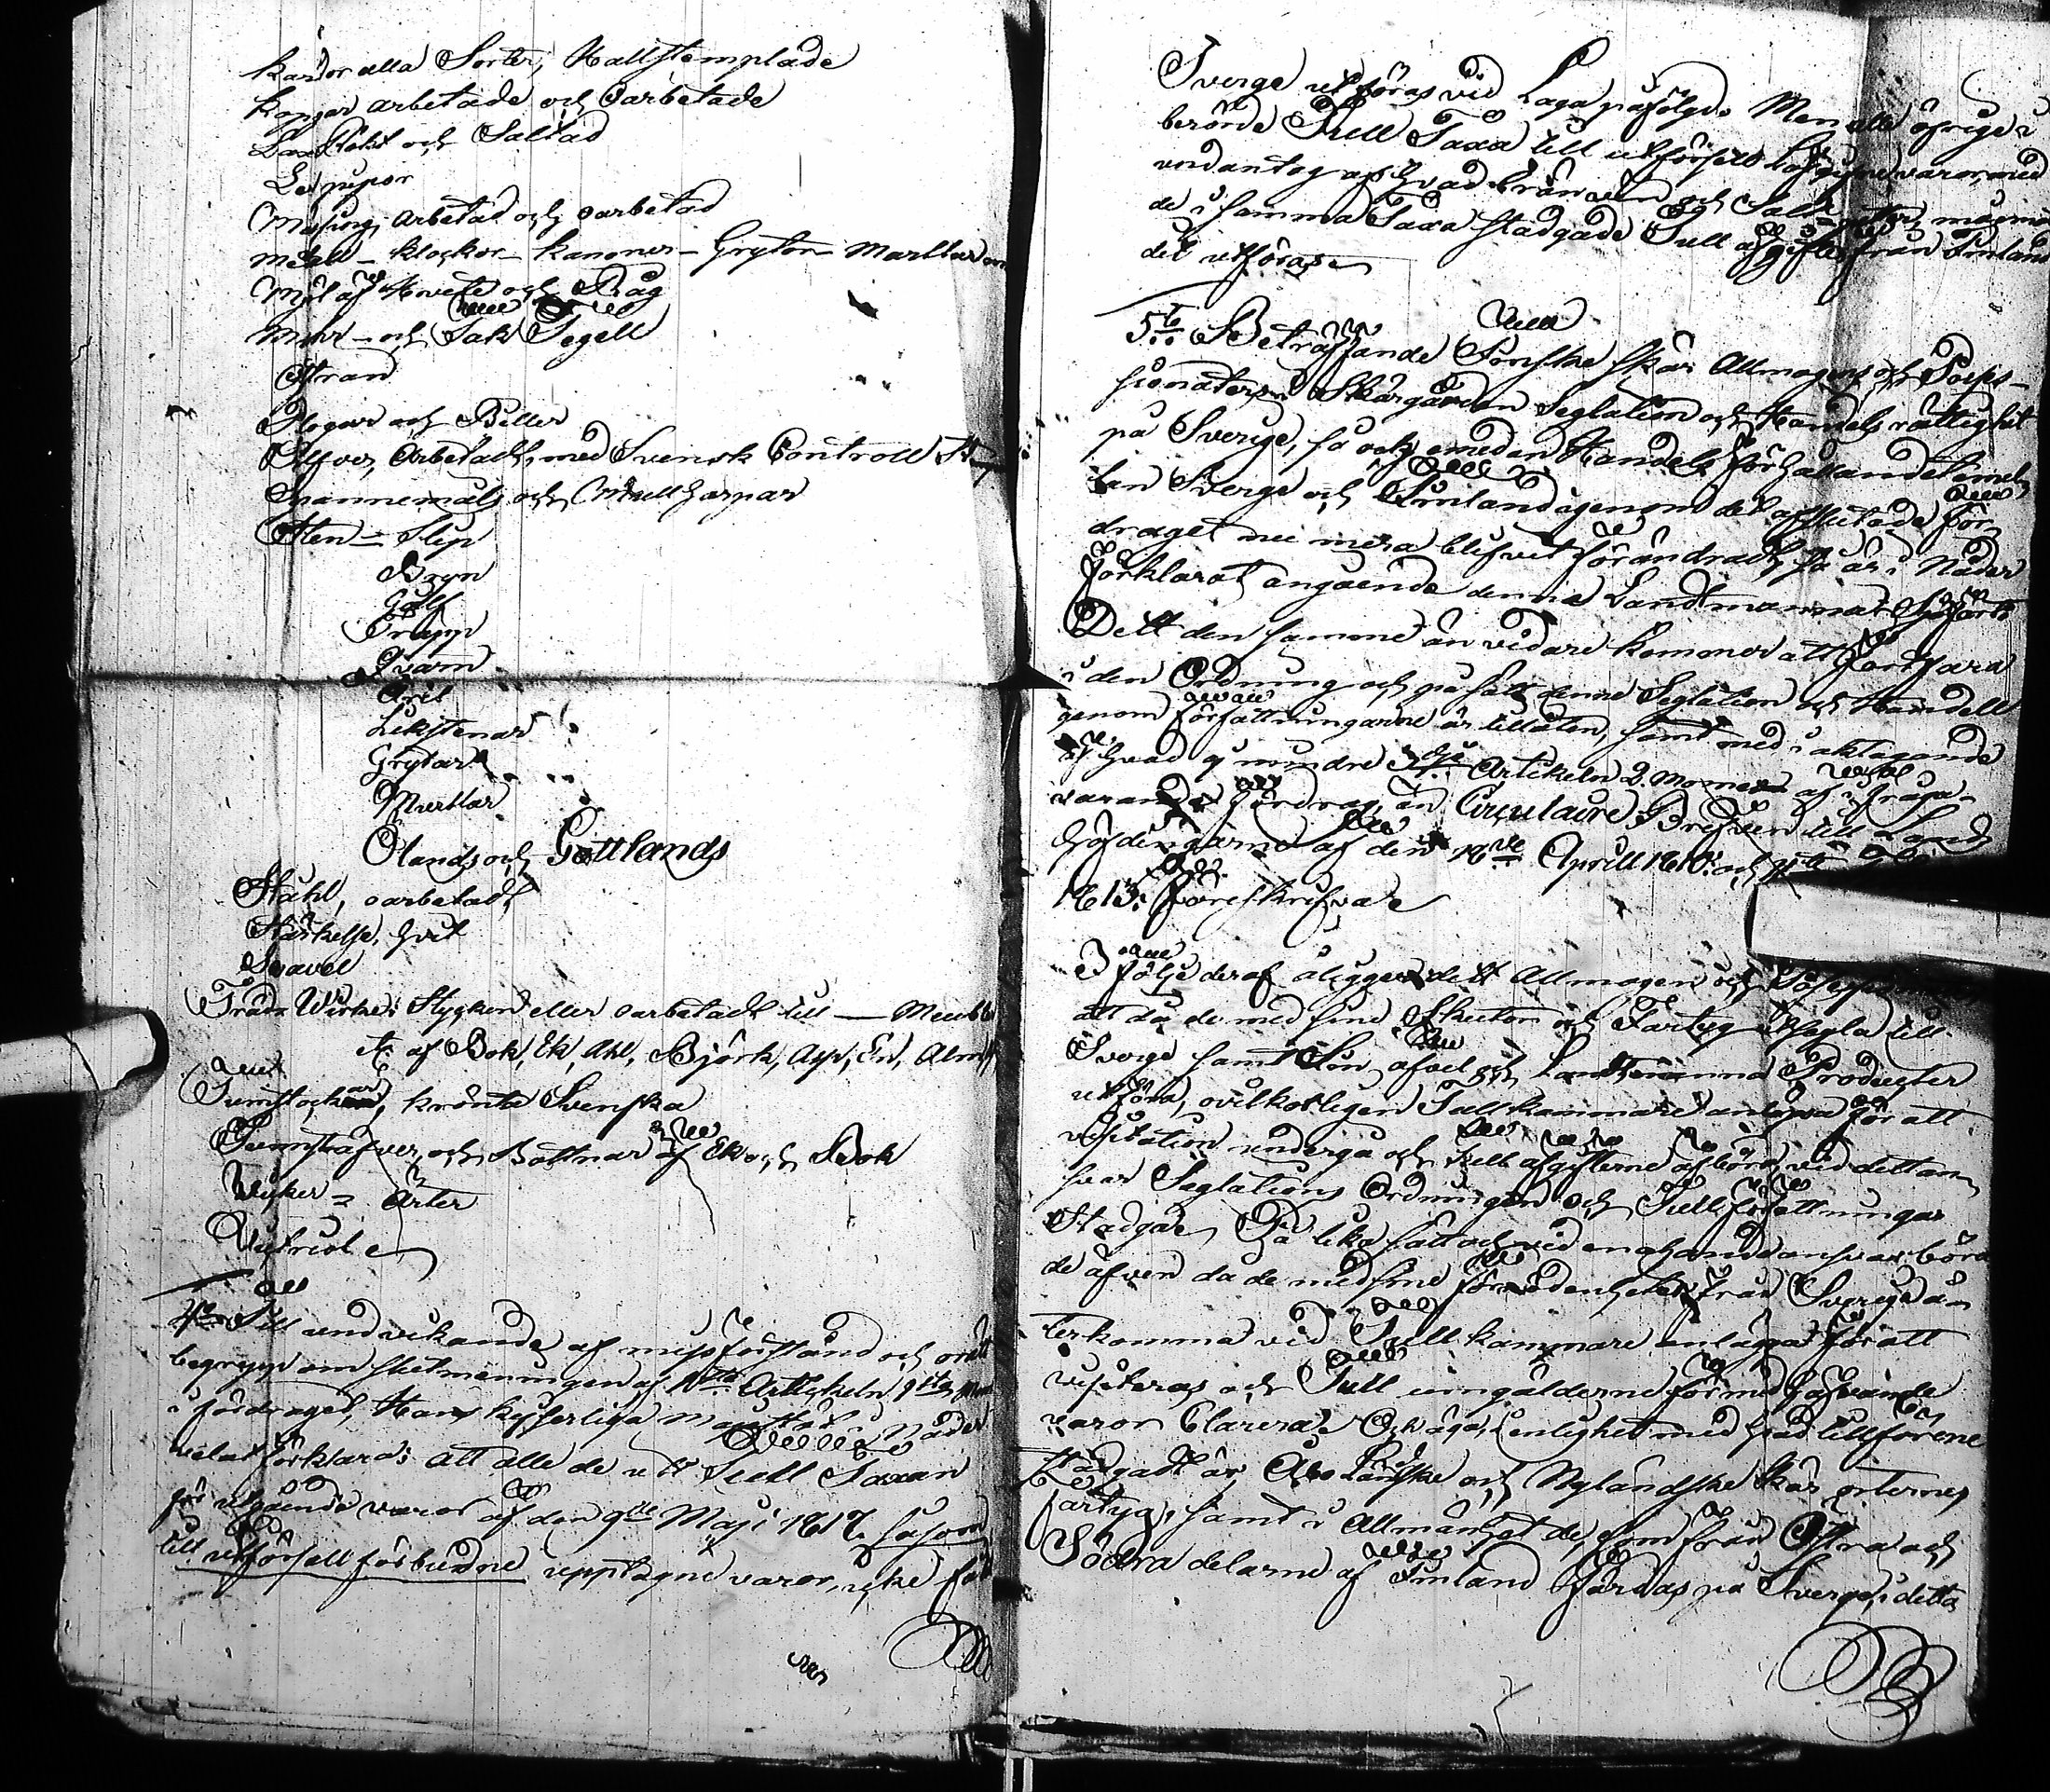 kardor alla Sorter, Hallstemplade
Koppar arbetade och Oarbetade
Lax Rökt och Saltad
Ler pipor
Mässing, arbetad och oarbetad
Metall – klockor – kanoner – Grytor – Mortlar
Mjöl af Hvete och Råg
Mur – och Tak Tegell
Ostron
Plogar och Biller
Silfver, Arbetadt, med Svensk Controll
Spannemåls och Mull harpor
Sten – Slip
Bryn
Golf
Trapp
Qvarn
Liksténar
Grytor
Murtlar
Ölands och Gottlands
Stahl, oarbetadt
Stärkelse, hvit
Svavel
Träd Wirke i Stycken eller oarbetadt till – Meubler
etc. af Bok, Ek, Ahl, Björk, Asp, En, Alm
Tumstockar, krönta Svenska
Tunnstäfver och Bottnar af Ek och Bok
Wicker – Ärter
Victriol
4to Till undvikande af missförstånd och orätt
begrepp om slutmeningen af Artickeln
i fördraget, Hans Kejserliga Majestät i Nåder
velat förklara: att alle de uti Tull Taxan
för utgående varor af den 9de Maji 1817. såsom
till utförsell förbudne upptagne varor, icke få
Sverge utföras vid Laga påföljd. Men alle öfrige i
berörde Tull Taxa till utförsell lofgifne varor, med
undantag af hvad bränvin och Salt, måga mot
de i samma Taxa stadgade Tull afgifter från Finland
det utföras
5to Beträffande Finske skär Allmogens och Possess-
sionaters i Skärgården Seglation och Handels rättighet
på Sverige, så och emedan Handels förhållandet emel-
lan Sverge och Finland igenom det afslutade för-
draget nu mera blifvit förändradt, så är i Nåder
förklarat angående denna Landtmanna Sjöfart:
Dett den samme än vidare kommer att fortfara
i den Ordning och på sätt denna Seglation och Handell
genom författningarne är tillåten, samt med i aktagande
af hvad ej mindre Artikeln 2. Momen af ifråga-
varande fördrag, än Circulaire Brefven till Lands
höfdingarne af den 18de Aprill 1810. och
1813. föreskrifva
I följe deraf åligger dett Allmogen och
att då de med sine Skutor och Fartyg afsegla till
Sverge samt Sin afvel och Landtmanna Producter
utföra, ovilkorligen Tullkammare anlöpa för att
visitation undergå och Tull afgifterne afbörda vid dett an-
svar Seglations Ordningen och Tullförfattningar
Stadgar. På lika sätt och vid enahanda ansvar böra
de äfven då de med sine förnödenheter från Sverge å-
terkomma vid Tull kammare anlägga för att
visiteras och Tull umgälderne för medhafvande
varor Clarera. Och äga, i enlighet med hvad tillförene
stadgadt är Åbo Länske och Nylandske skär orternes
fartyg, samt i Allmänhet de, som från Östra och
Södra delarne af Finland färdas på Sverge, i detta